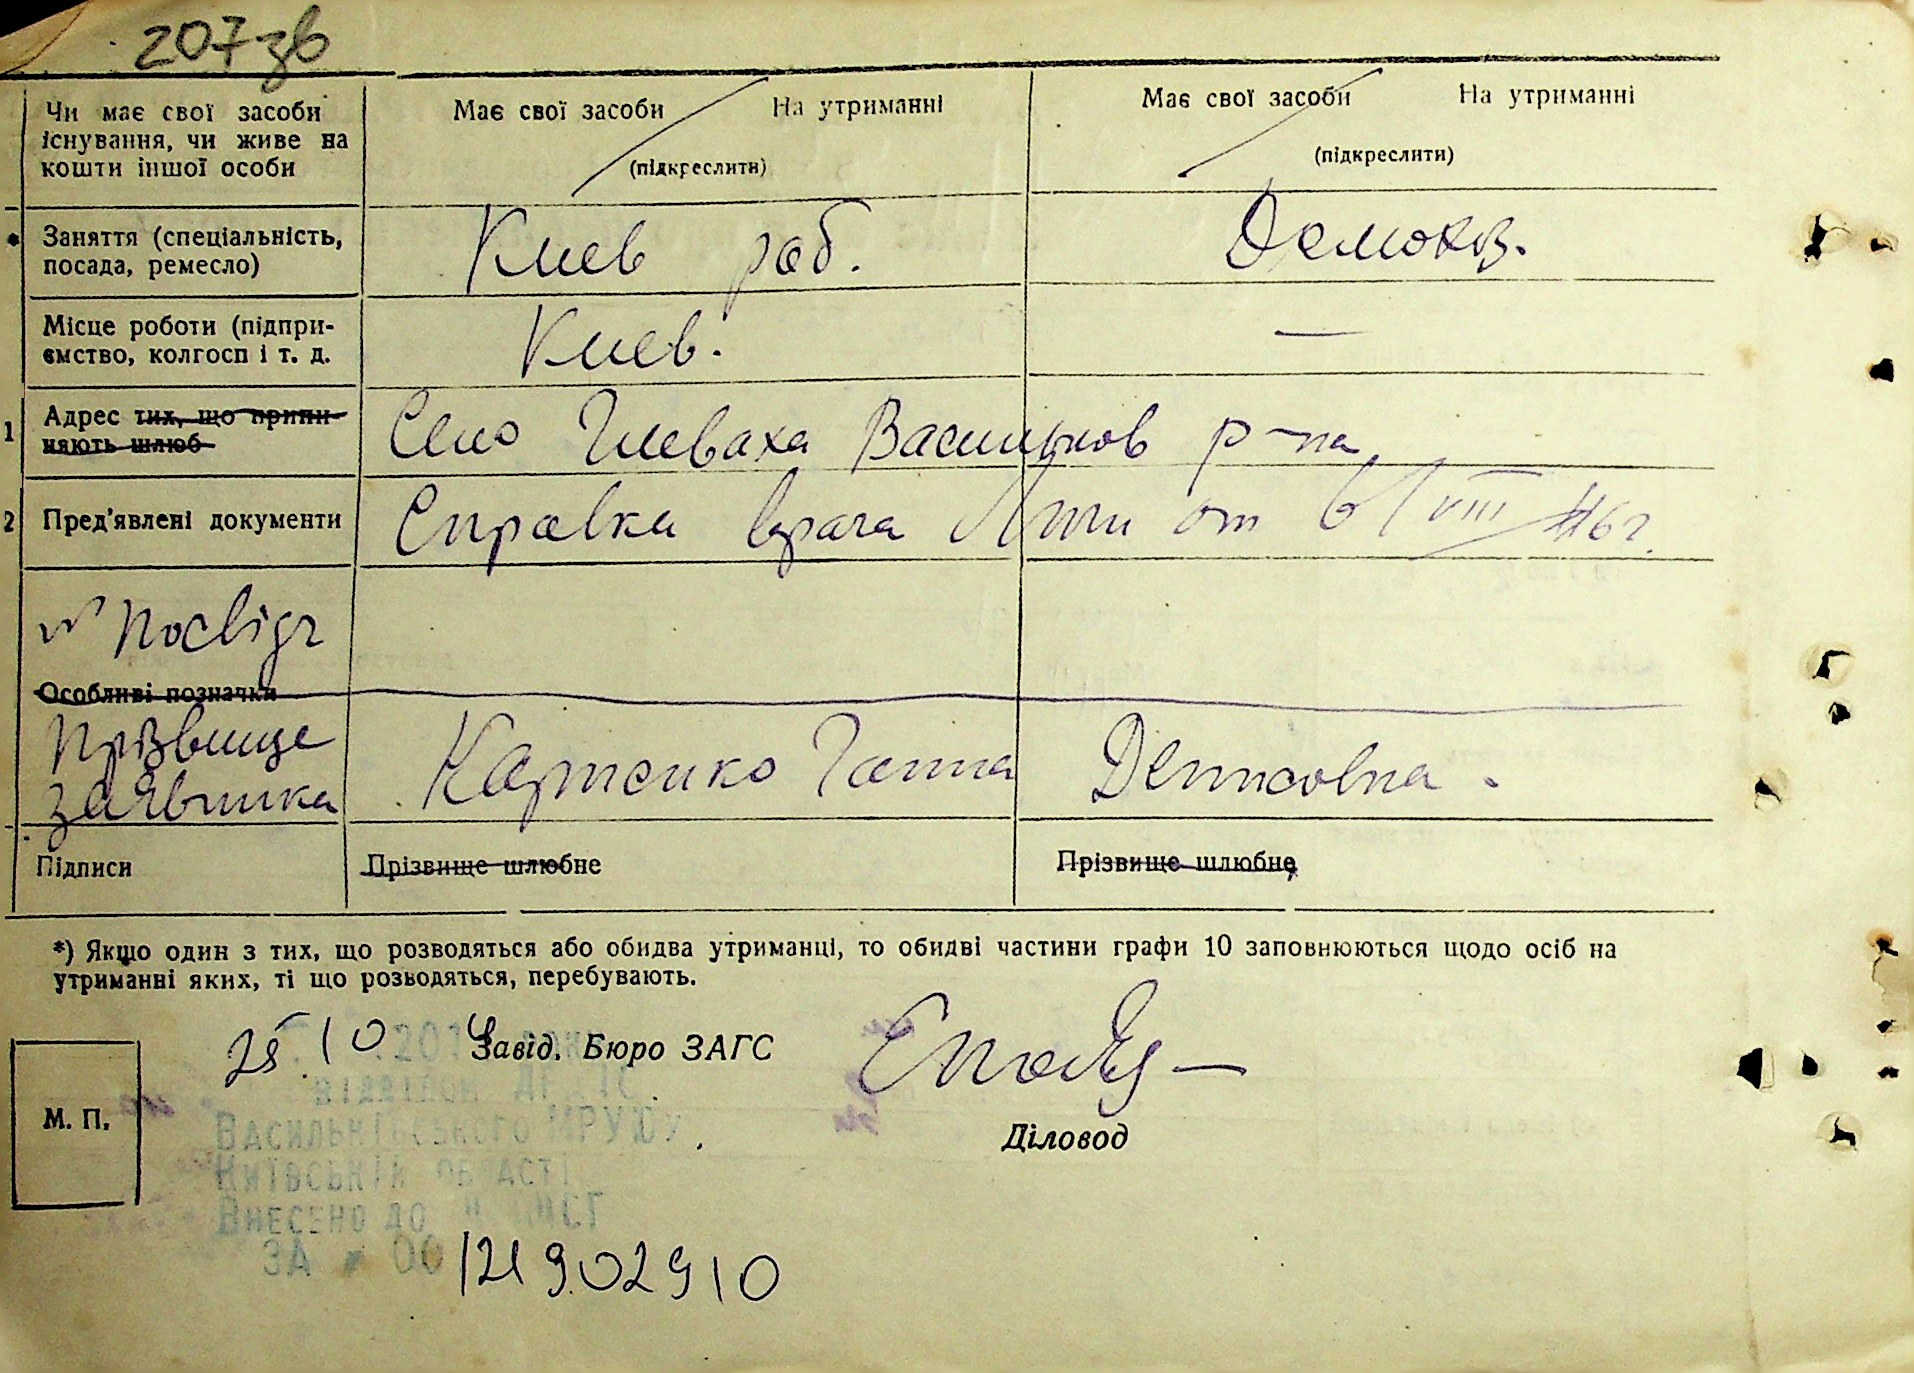 207 зв
Чи має свої засоби існування, чи живе на кошти іншої особи
Має свої засоби На утриманні
(підкреслити)
Має свої засоби На утриманні
(підкреслити)
Заняття (спеціальність, посада, ремесло)
Киев раб.
Домохоз.
Місце роботи (підпри-
ємство, колгосп і т. д.
Киев.
—
1 Адрес тих, що припи-
няють шлюб
Село Глеваха Васильков р-на
2 Пред'явлені документи
Справка врача от 6/VIII 46 г.
№ Посвідч
Особливі позначки
Прізвище
заявника
Карпенко Ганна Денисовна.
Підписи
Прізвище шлюбне
Прізвище шлюбне
*) Якщо один з тих, що розводяться або обидва утриманці, то обидві частини графи 10 заповнюються щодо осіб на
утриманні яких, ті що розводяться, перебувають.
25.10 201
Завід. Бюро ЗАГС
Відділом ДРАЦС
М. П.
Васильківського МРУЮ
Діловод
Київській області
Внесено до
За № 00121902910